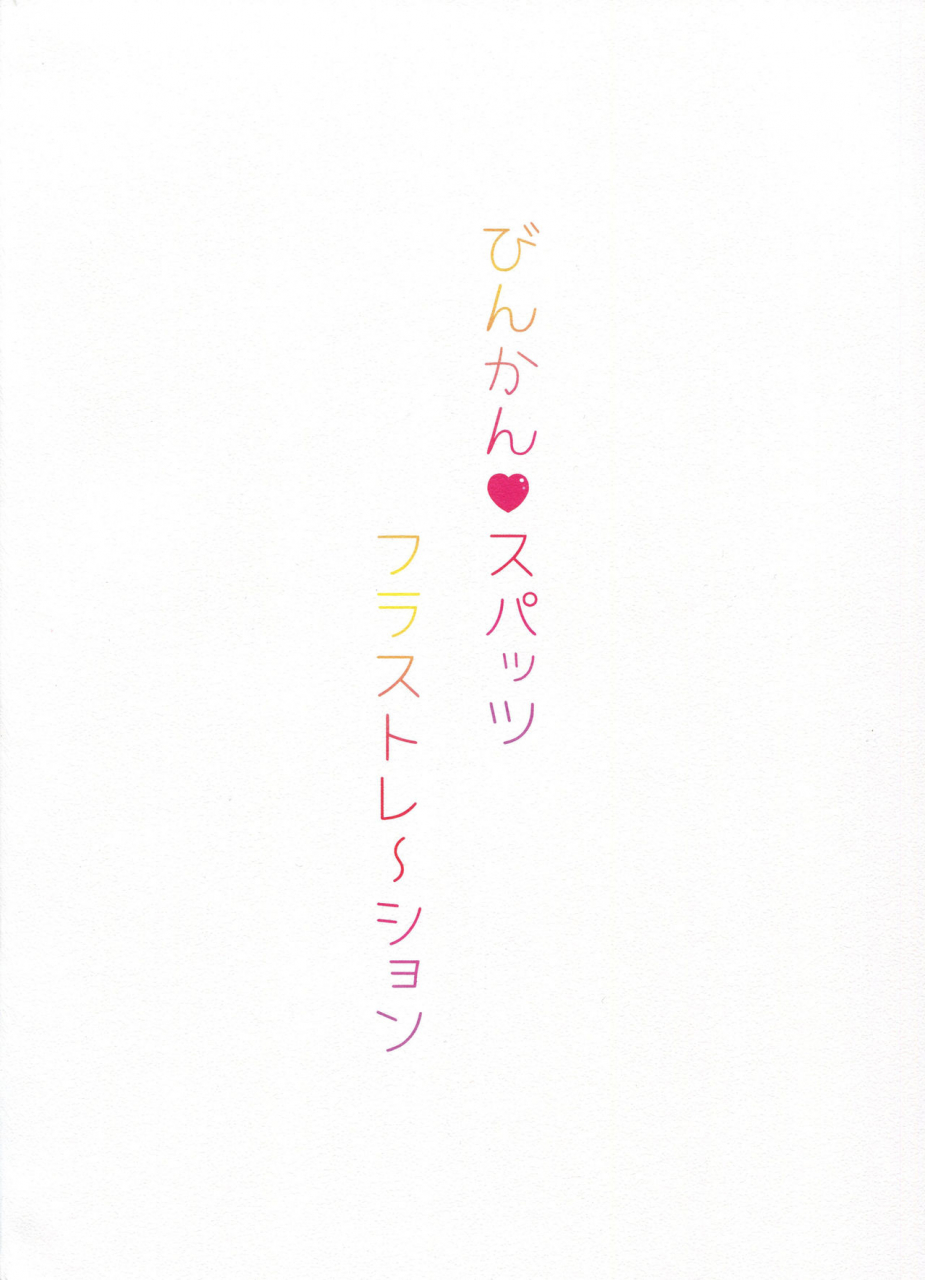 びんかん♥スパッツ
フラストレ～ション